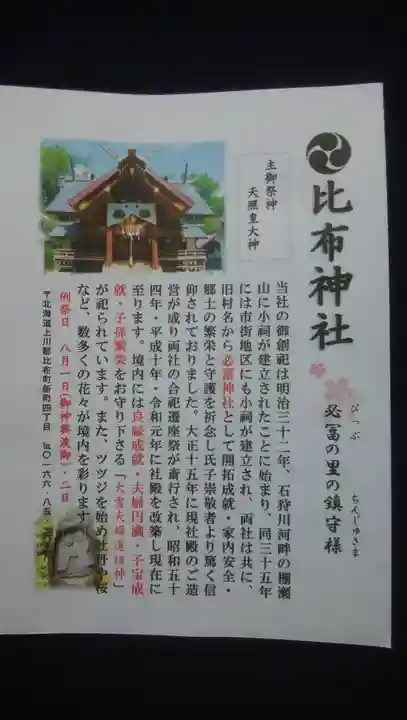 比布神社
必冨の里の鎮守様
ぴっぷ
ちんじゅさま
主御祭神
天照皇大神
当社の御創祀は明治三十二年、石狩川河畔の棚瀬
山に小祠が建立されたことに始まり、同三十五年
には市街地区にも小祠が建立され、両社は共に、
旧村名から必富神社として開拓成就・家内安全・
郷土の繁栄と守護を祈念し氏子崇敬者より篤く信
仰されておりました。大正十五年に現社殿のご造
営が成り両社の合祀遷座祭が斎行され、昭和五十
四年・平成十年・令和元年に社殿を改築し現在に
至ります。境内には良縁成就・夫婦円満・子宝成
就・子孫繁栄をお守り下さる「大雪夫婦道祖神」
が祀られています。また、ツツジを始め牡丹や桜
など、数多くの花々が境内を彩ります
例祭日 八月一日(御神輿渡御)・二日
〒北海道上川郡比布町新町四丁目 ℡〇一六六・八五・